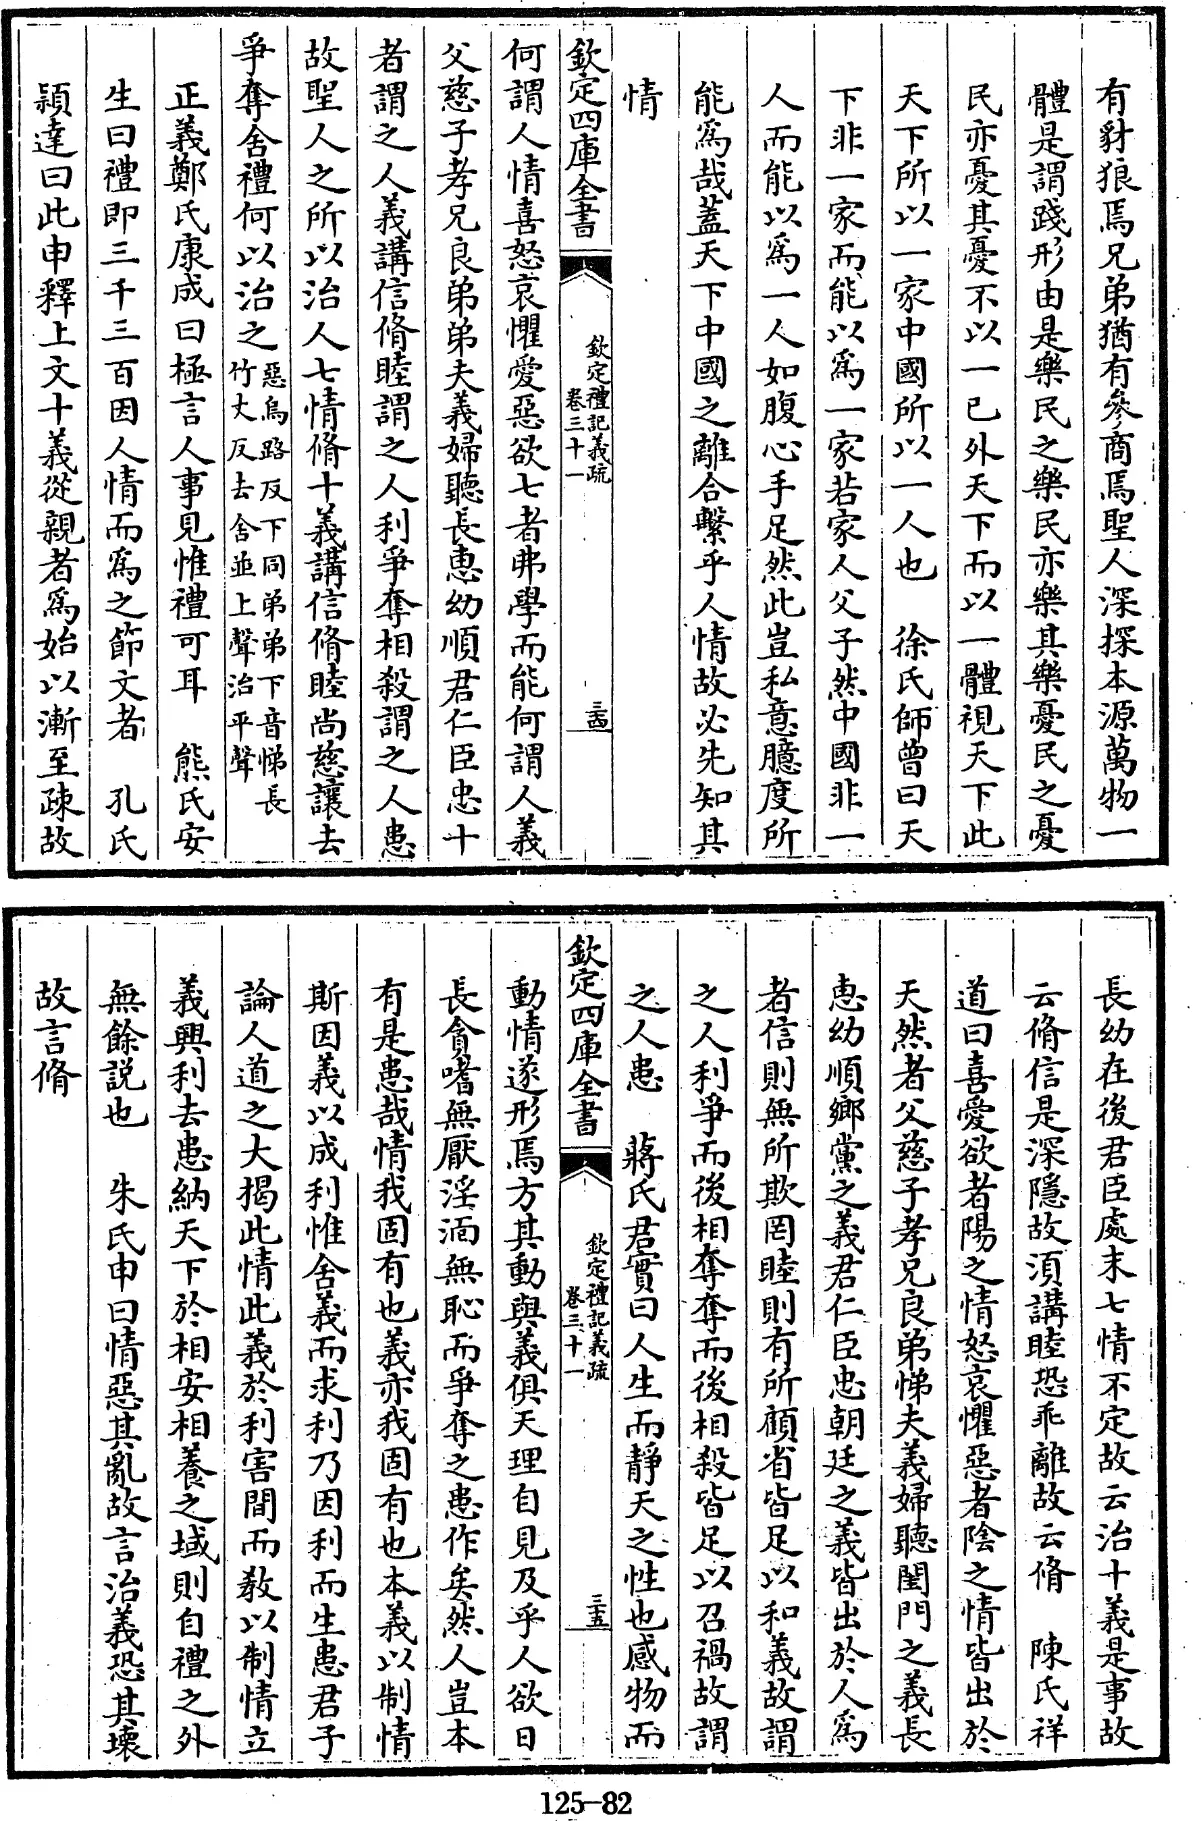 有豺狼焉兄弟猶有參商焉聖人深探本源萬物一
體是謂踐形由是樂民之樂民亦樂其樂憂民之憂
民亦憂其憂不以一己外天下而以一體視天下此
天下所以一家中國所以一人也　徐氏師曾曰天
下非一家而能以爲一家若家人父子然中國非一
人而能以爲一人如腹心手足然此豈私意臆度所
能爲哉蓋天下中國之離合繫乎人情故必先知其
情
欽定四庫全書　欽定禮記義疏卷三十一　三四
何謂人情喜怒哀懼愛惡欲七者弗學而能何謂人義
父慈子孝兄良弟弟夫義婦聽長惠幼順君仁臣忠十
者謂之人義講信脩睦謂之人利爭奪相殺謂之人患
故聖人之所以治人七情脩十義講信脩睦尚慈讓去
爭奪舍禮何以治之惡烏路反下同弟弟下音悌長竹丈反去舍並上聲治平聲
正義鄭氏康成曰極言人事見惟禮可耳　熊氏安
生曰禮即三千三百因人情而爲之節文者　孔氏
穎達曰此申釋上文十義從親者爲始以漸至疎故
長幼在後君臣處末七情不定故云治十義是事故
云脩信是深隱故須講睦恐乖離故云脩　陳氏祥
道曰喜愛欲者陽之情怒哀懼惡者陰之情皆出於
天然者父慈子孝兄良弟悌夫義婦聽閨門之義長
惠幼順鄉黨之義君仁臣忠朝廷之義皆出於人爲
者信則無所欺罔睦則有所顧省皆足以和義故謂
之人利爭而後相奪奪而後相殺皆足以召禍故謂
之人患　蔣氏君實曰人生而靜天之性也感物而
欽定四庫全書　欽定禮記義疏卷三十一　三五
動情遂形焉方其動與義俱天理自見及乎人欲日
長貪嗜無厭淫湎無恥而爭奪之患作矣然人豈本
有是患哉情我固有也義亦我固有也本義以制情
斯因義以成利惟舍義而求利乃因利而生患君子
論人道之大揭此情此義於利害間而教以制情立
義興利去患納天下於相安相養之域則自禮之外
無餘説也　朱氏申曰情惡其亂故言治義恐其壞
故言脩
125-82